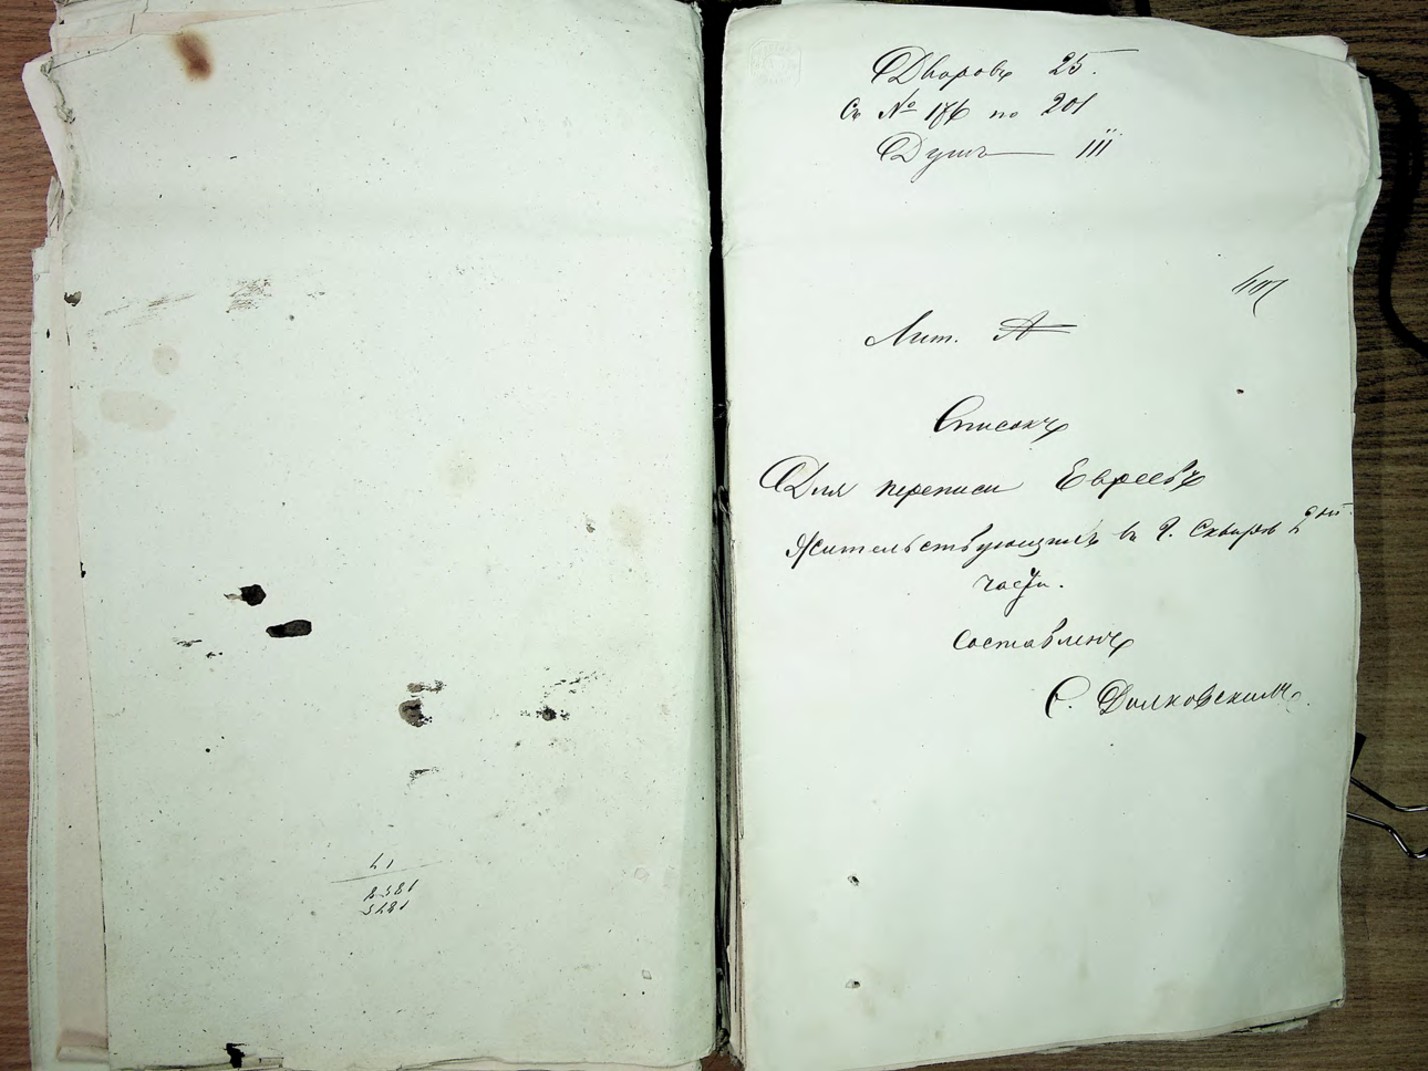 Дворовъ 25.
Съ № 176 по 201
Душъ — 111
Лит. А
Списокъ
Для переписи Евреевъ
Жительствующихъ въ г. Сквирѣ 2ой
части.
Составленъ
С. Долковскимъ.